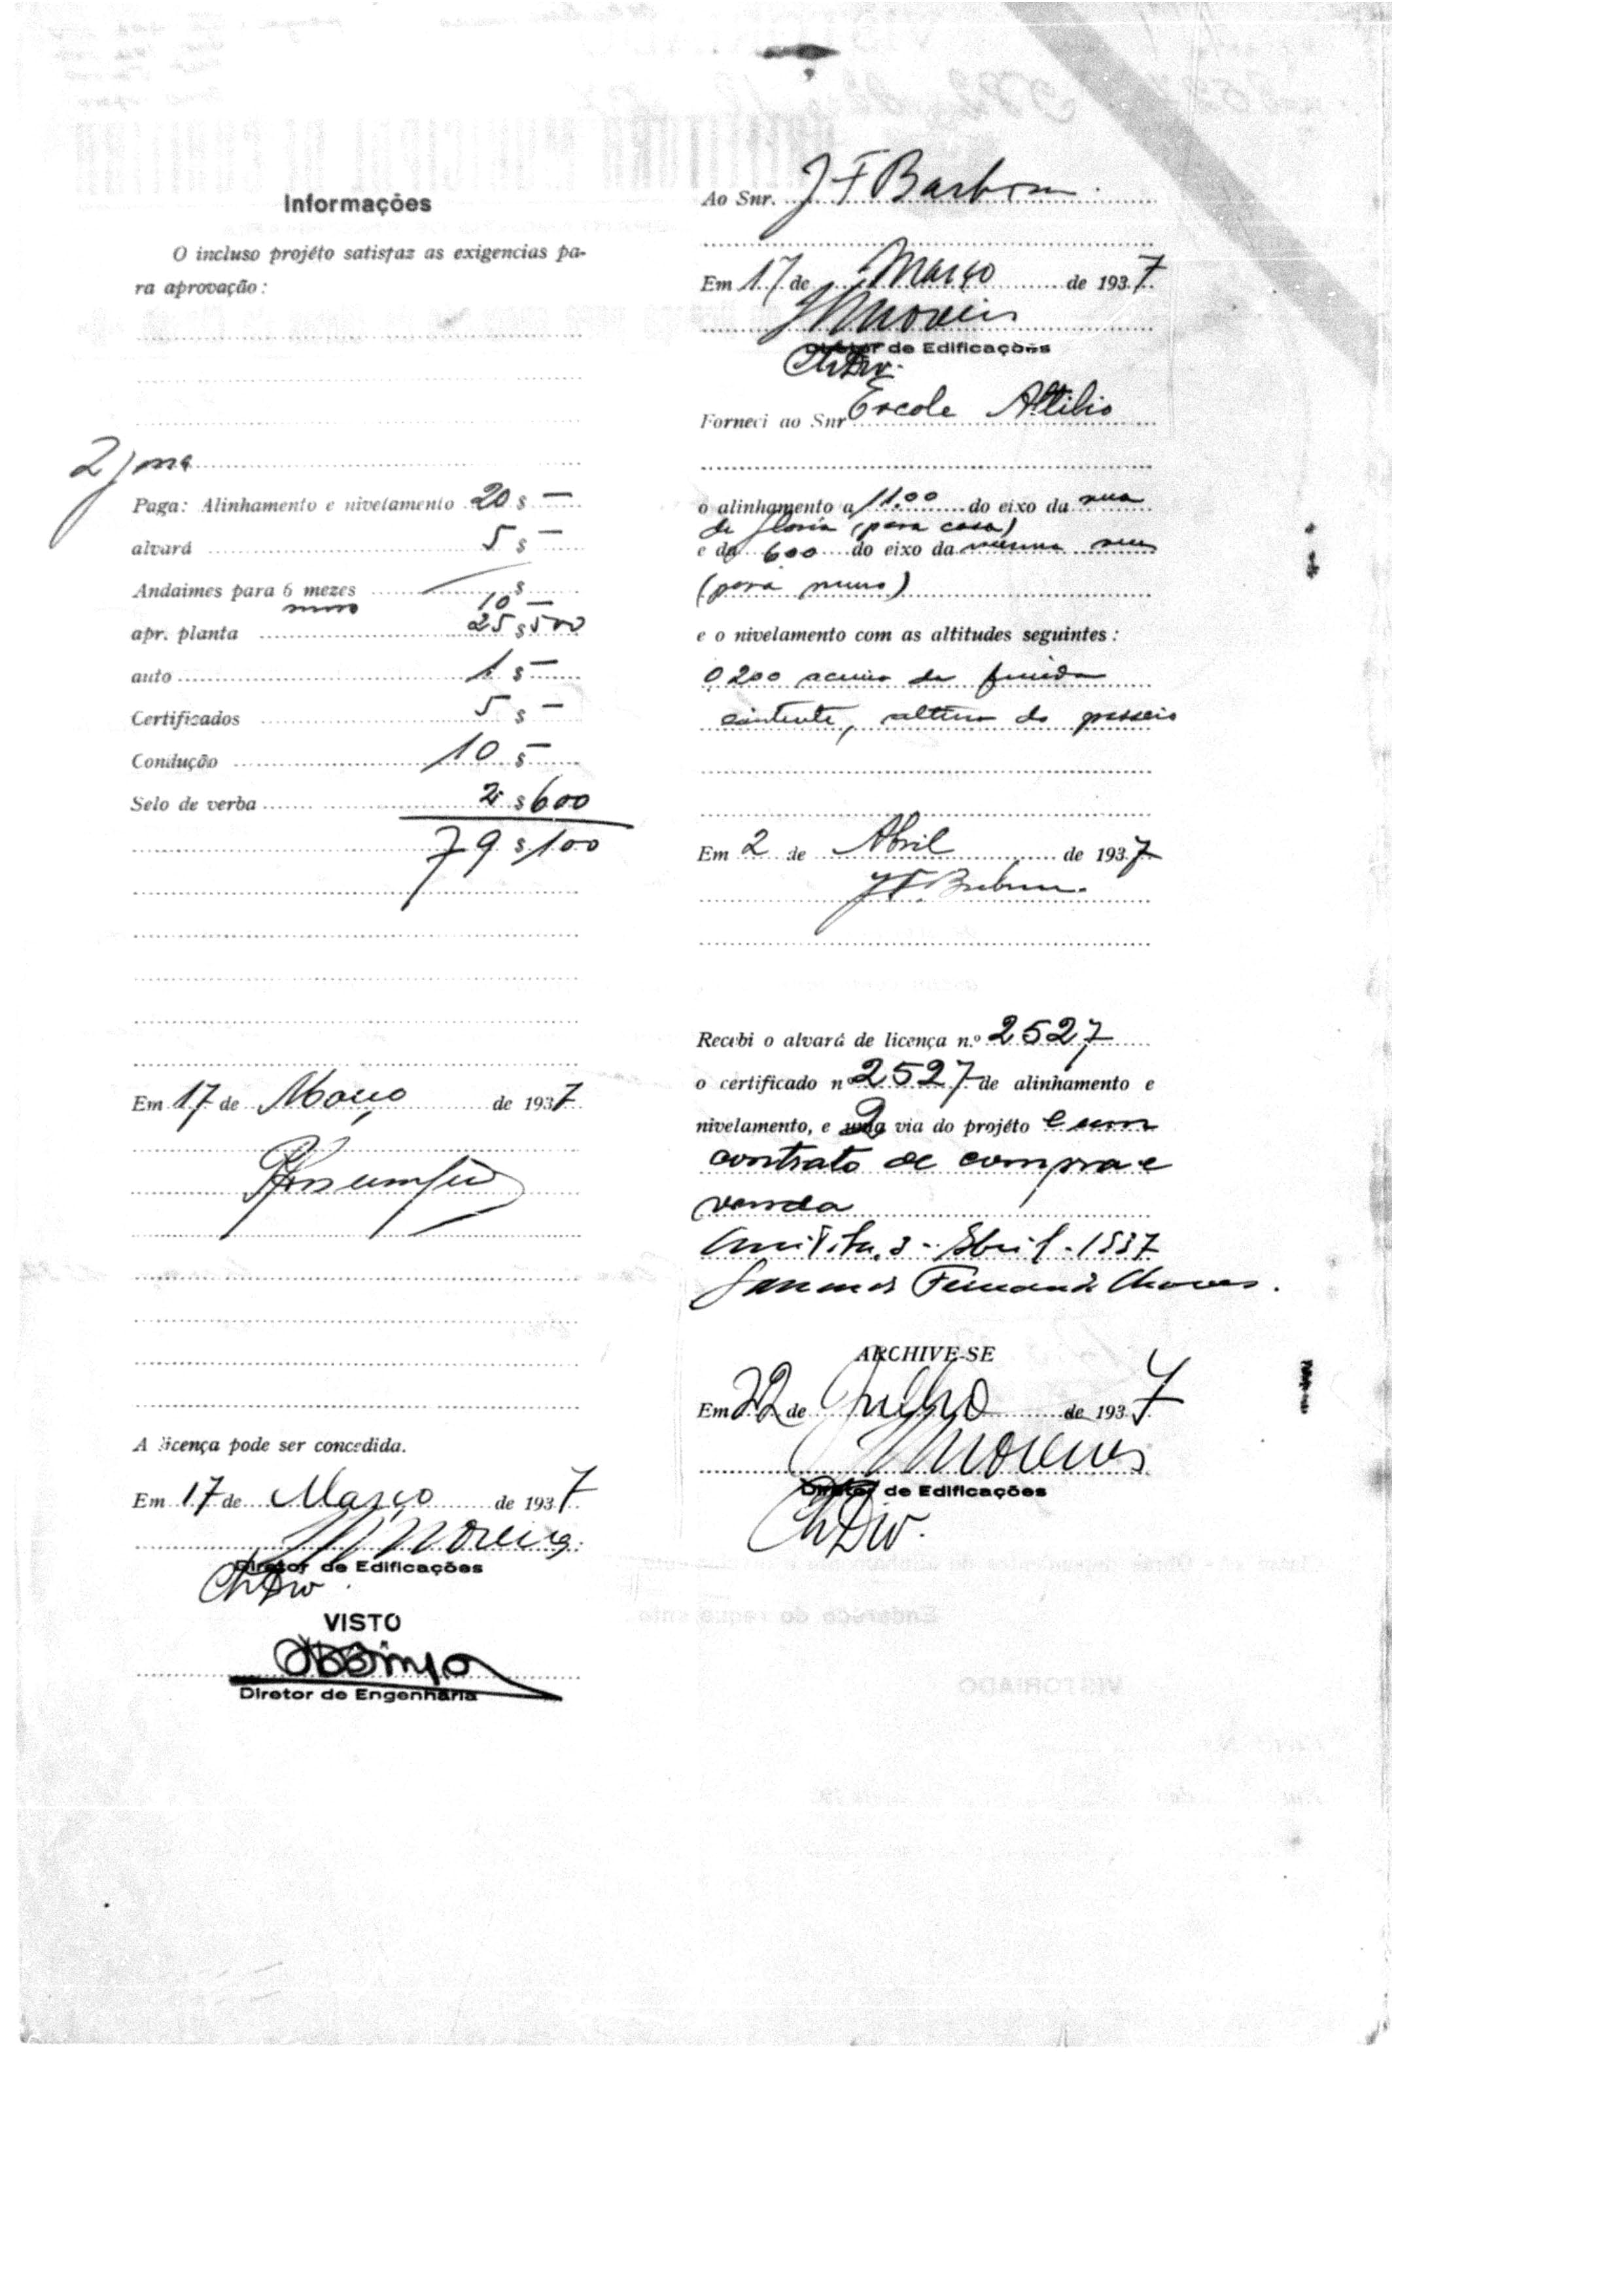 Informações
O incluso projéto satisfaz as exigencias pa-
ra aprovação :
Paga: Alinhamento e nivelamento 20 $ —
alvará 5 $ —
Andaimes para 6 mezes $
muro 10 —
apr. planta 25 $ 500
auto 1 $ —
Certificados 5 $ —
Condução 10 $ —
Selo de verba 2 $ 600
79 $ 100
Em 17 de Março de 1937
A licença pode ser concedida.
Em 17 de Março de 1937
Moreira
Diretor de Edificações
Ch Div.
VISTO
Diretor de Engenharia
Ao Snr. J F Barbosa
Em 17 de Março de 1937
Moreira
Diretor de Edificações
Ch Div.
Forneci ao Snr Ercole Attilio
o alinhamento a 11.00 do eixo da rua
da Gloria (para casa)
e da 600 do eixo da mesma rua
(para muro)
e o nivelamento com as altitudes seguintes :
0,200 acima da
existente, altura do passeio
Em 2 de Abril de 1937
Recebi o alvará de licença n.º 2527
o certificado nº 2527 de alinhamento e
nivelamento, e uma 2 via do projéto e um
contrato de compra e
venda
Curitiba, 3 - Abril - 1937
ARCHIVE-SE
Em 22 de Julho de 1937
Moreira
Diretor de Edificações
Ch Div.
VISTORIADO